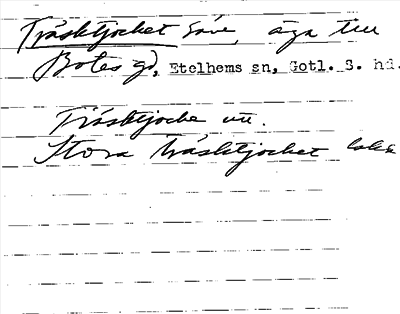 Träsktjocket Säve, äga till
Botes gd, Etelhems sn, Gotl. S. hd.
Träsktjocke un.
Stora Träsktjocket